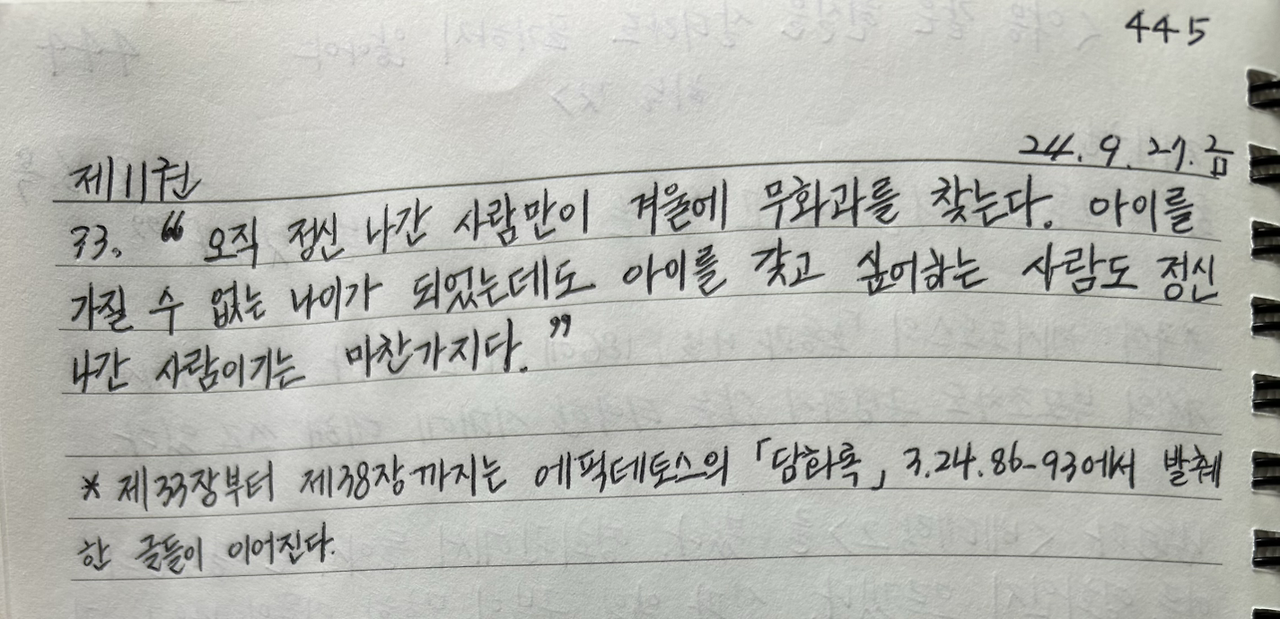 445
24. 9. 27. 금
제11권
33. “ 오직 정신 나간 사람만이 겨울에 무화과를 찾는다. 아이를
가질 수 없는 나이가 되었는데도 아이를 갖고 싶어하는 사람도 정신
나간 사람이기는 마찬가지다. ”
* 제33장부터 제38장까지는 에픽테토스의 「담화록」 3.24.86-93에서 발췌
한 글들이 이어진다.